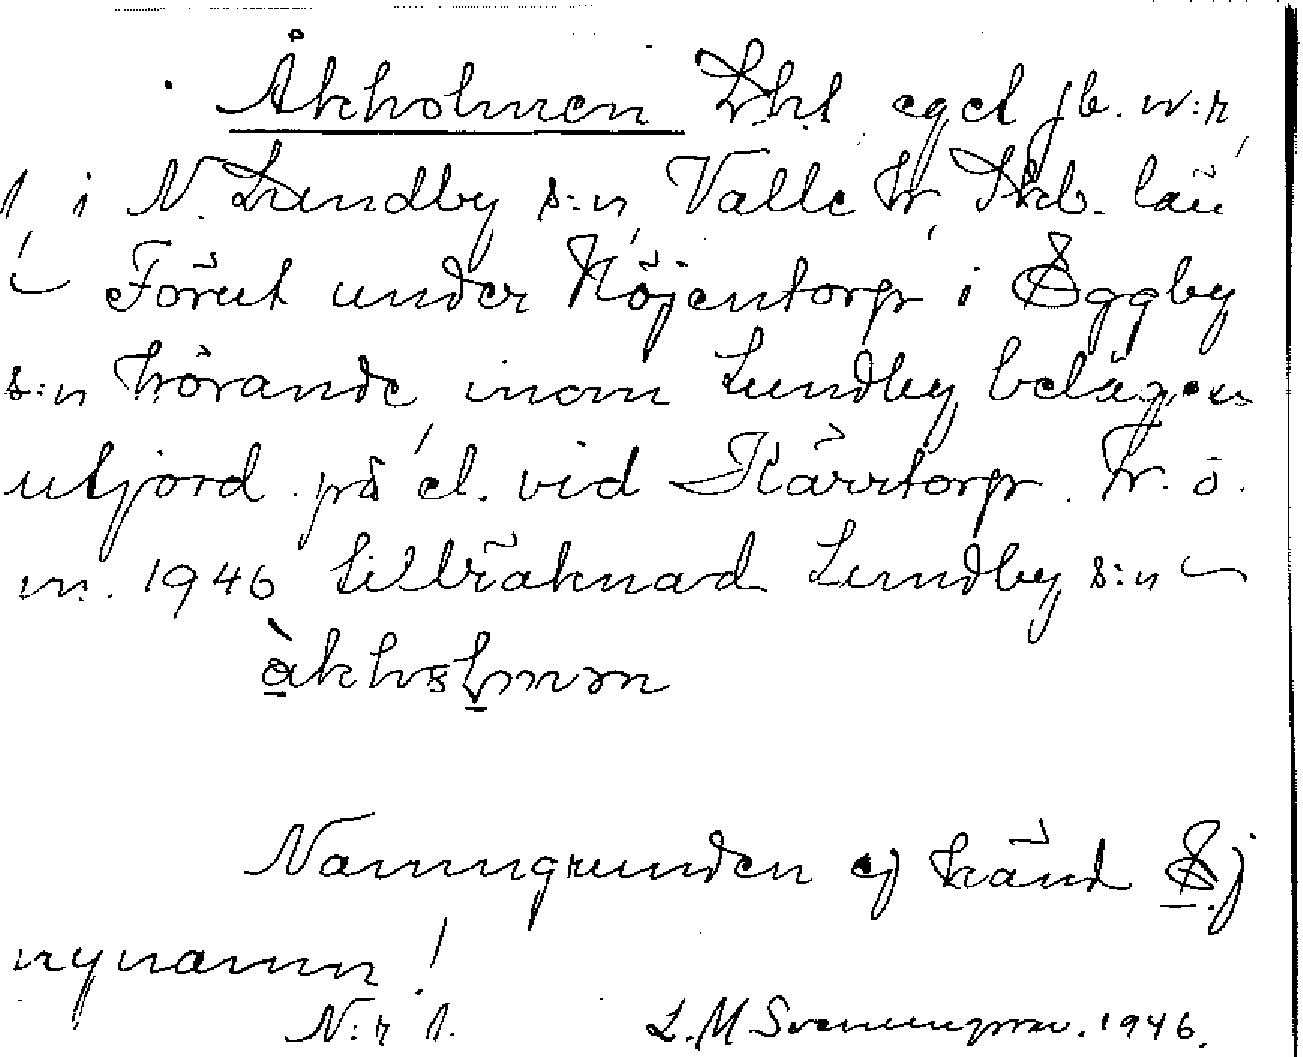 Åkholmen Lht eget jb. n:r
1 i N. Lundby s:n, Valle hr, Skb. län
– Förut under Höjentorp i Eggby
s:n hörande, inom Lundby belägen
utjord på el. vid Kärrtorp. Fr. o.
m. 1946 tillräknad Lundby s:n –
àkhɷlmən
Namngrunden ej känd Ej
nynamn!
N:r 1. L. M Svenungsson. 1946.